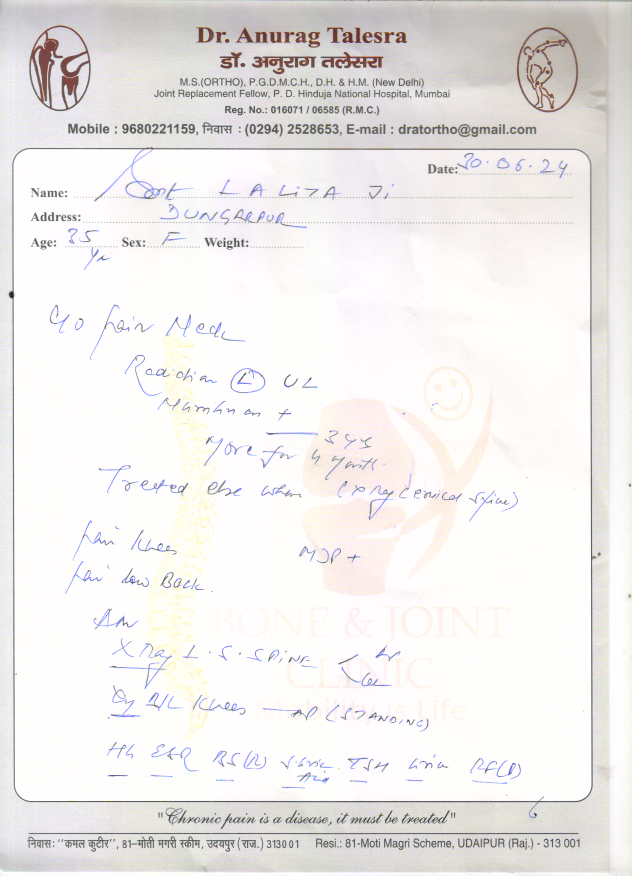 Dr. Anurag Talesra
डॉ. अनुराग तलेसरा
M.S.(ORTHO), P.G.D.M.C.H., D.H. & H.M. (New Delhi)
Joint Replacement Fellow, P. D. Hinduja National Hospital, Mumbai
Reg. No.: 016071 / 06585 (R.M.C.)
Mobile : 9680221159, निवास : (0294) 2528653, E-mail : dratortho@gmail.com
Date: 30.06.24
Name: Smt LALITA Ji
Address: DUNGARPUR
Age: 35 yr Sex: F Weight:
C/o pain Neck
Radiation (L) UL
+
3 yrs
More for 4 month
Treated else where (x ray cervical spine)
pain knees MJP +
pain low Back.
Adv
X Ray L.S. SPINE < AP
Lat
B/L knees — AP (STANDING)
Hb ESR BS(R) S. Uric Acid TSH Urine RF(Q)
BONE & JOINT
CLINIC
Mobility is Life
"Chronic pain is a disease, it must be treated"
निवास: "कमल कुटीर", 81-मोती मगरी स्कीम, उदयपुर (राज.) 313001 Resi.: 81-Moti Magri Scheme, UDAIPUR (Raj.) - 313 001